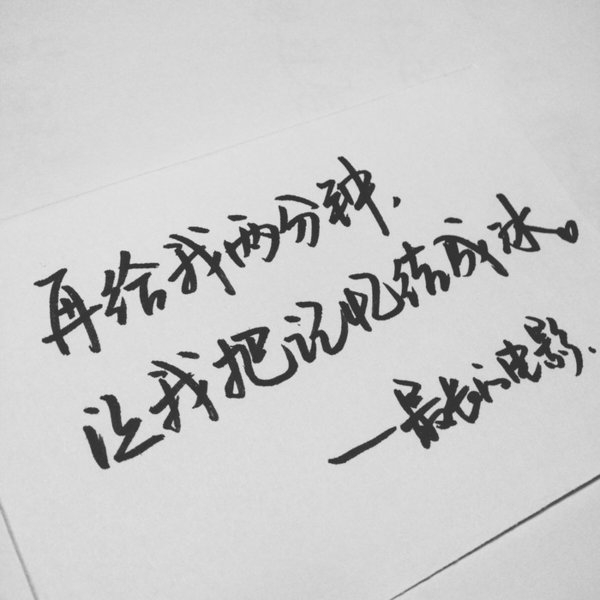 再给我两分钟,
让我把记忆结成冰。
—最长的电影.